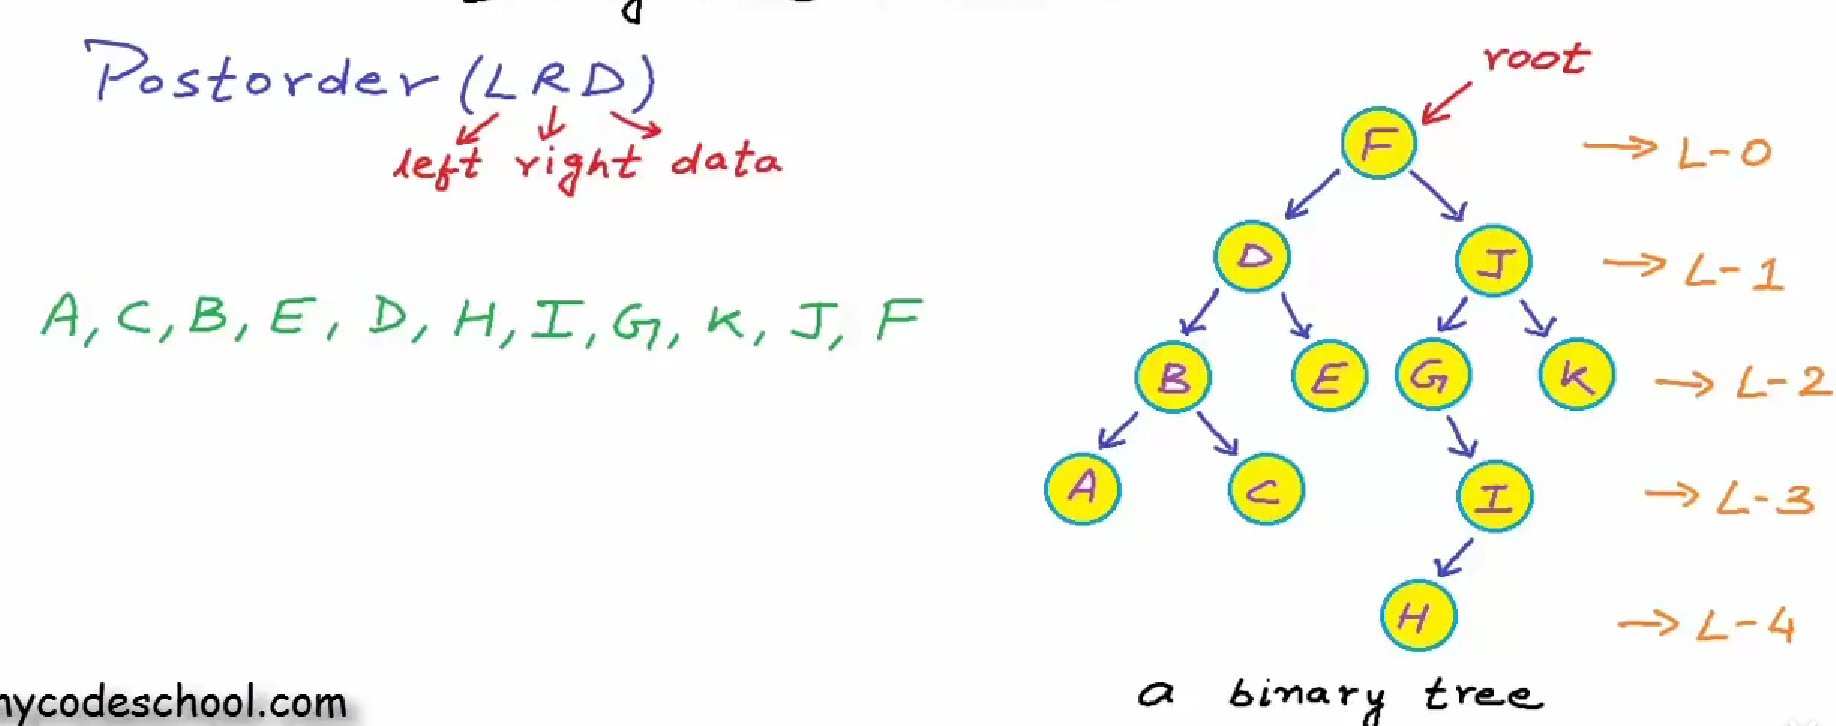 Postorder (LRD)
left right data
A, C, B, E, D, H, I, G, K, J, F
root
F
→ L-0
D
J
→ L-1
B
E
G
K
→ L-2
A
C
I
→ L-3
H
→ L-4
a binary tree
mycodeschool.com